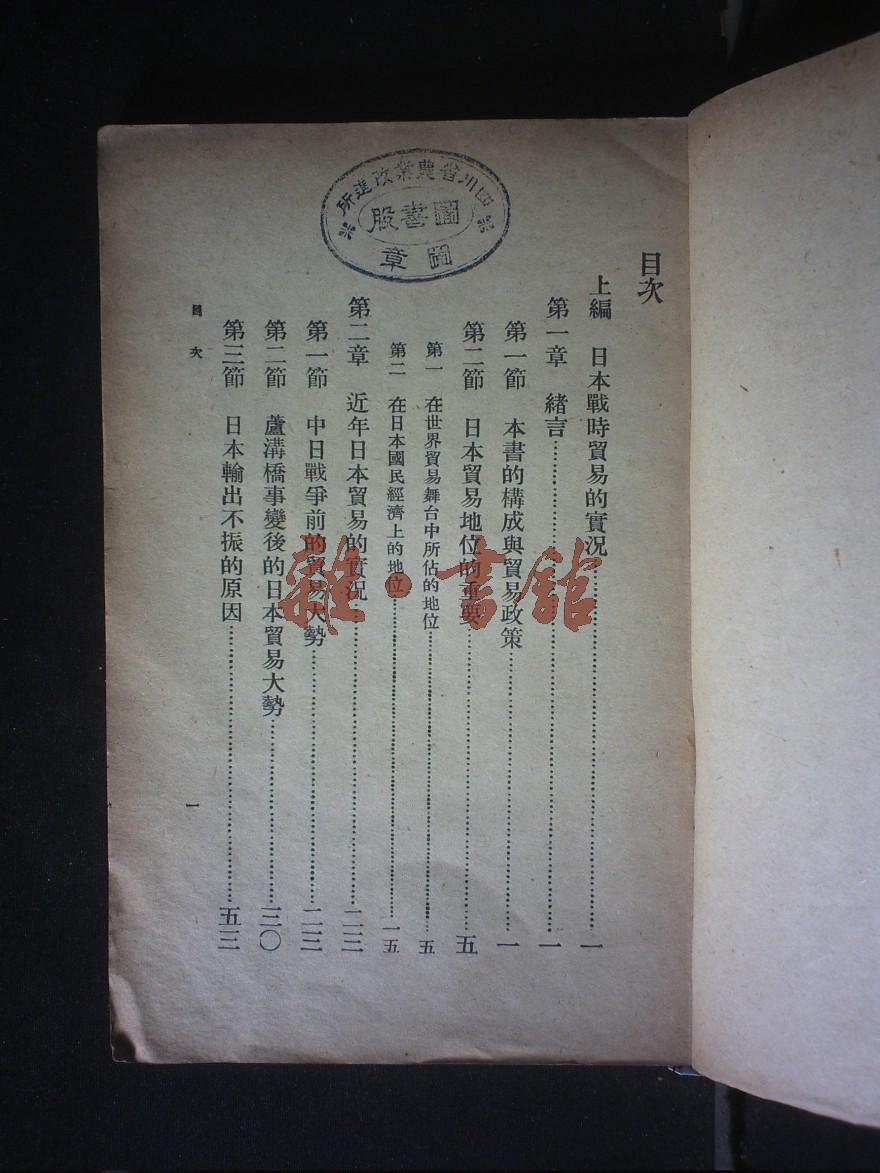 四川省農業改進所
圖書股
圖章
目次
上編 日本戰時貿易的實況…………一
第一章 緒言…………一
第一節 本書的構成與貿易政策…………一
第二節 日本貿易地位的重要…………五
第一 在世界貿易舞台中所佔的地位…………五
第二 在日本國民經濟上的地位…………一五
第二章 近年日本貿易的實況…………二三
第一節 中日戰爭前的貿易大勢…………二三
第二節 蘆溝橋事變後的日本貿易大勢…………三〇
第三節 日本輸出不振的原因…………五三
目次
一
雜·書館